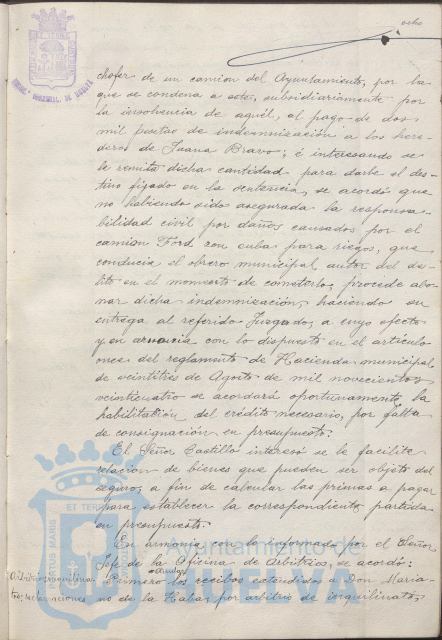 ocho
chofer de un camion del Ayuntamiento, por la
que se condena a este, subsidiariamente por
la insolvencia de aquél, al pago de dos
mil pesetas de indemnización a los here-
deros de Juana Bravo; é interesando se
le remita dicha cantidad para darle el des-
tino fijado en la sentencia, se acordó que
no habiendo sido asegurada la responsa-
bilidad civil por daños causados por el
camion Ford con cuba para riegos, que
conducia el obrero municipal autor del de-
lito en el momento de cometerlo, procede abo-
nar dicha indemnización, haciendo su
entrega al referido Juzgado, a cuyo efecto
y en armonia con lo dispuesto en el articulo
once del reglamento de Hacienda municipal
de veintitrés de Agosto de mil novecientos
veinticuatro se acordará oportunamente la
habilitación del crédito necesario, por falta
de consignación en presupuesto.
El Señor Castillo interesó se le facilite
relación de bienes que pueden ser objeto del
seguro, a fin de calcular las primas a pagar
para establecer la correspondiente partida
en presupuesto.
En armonia con lo informado por el Señor
Jefe de la Oficina de Arbitrios, se acordó:
Primero los recibos extendidos a Don Maria-
no de la Haba, por arbitrio de inquilinato,
Arbitrio inquilina-
to, reclamaciones
Ayuntamiento de
HUELVA